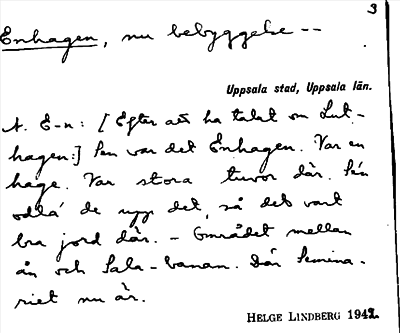 3
Enhagen, nu bebyggelse --
Uppsala stad, Uppsala län.
A. E-n: [Efter att ha talat om Lut-
hagen:] Sen var det Enhagen. Var en
hage. Var stora tuvor där. Sén
odla' de upp det, så det vart
bra jord där. - Området mellan
ån och Sala-banan. Där Semina-
riet nu är.
HELGE LINDBERG 1942.